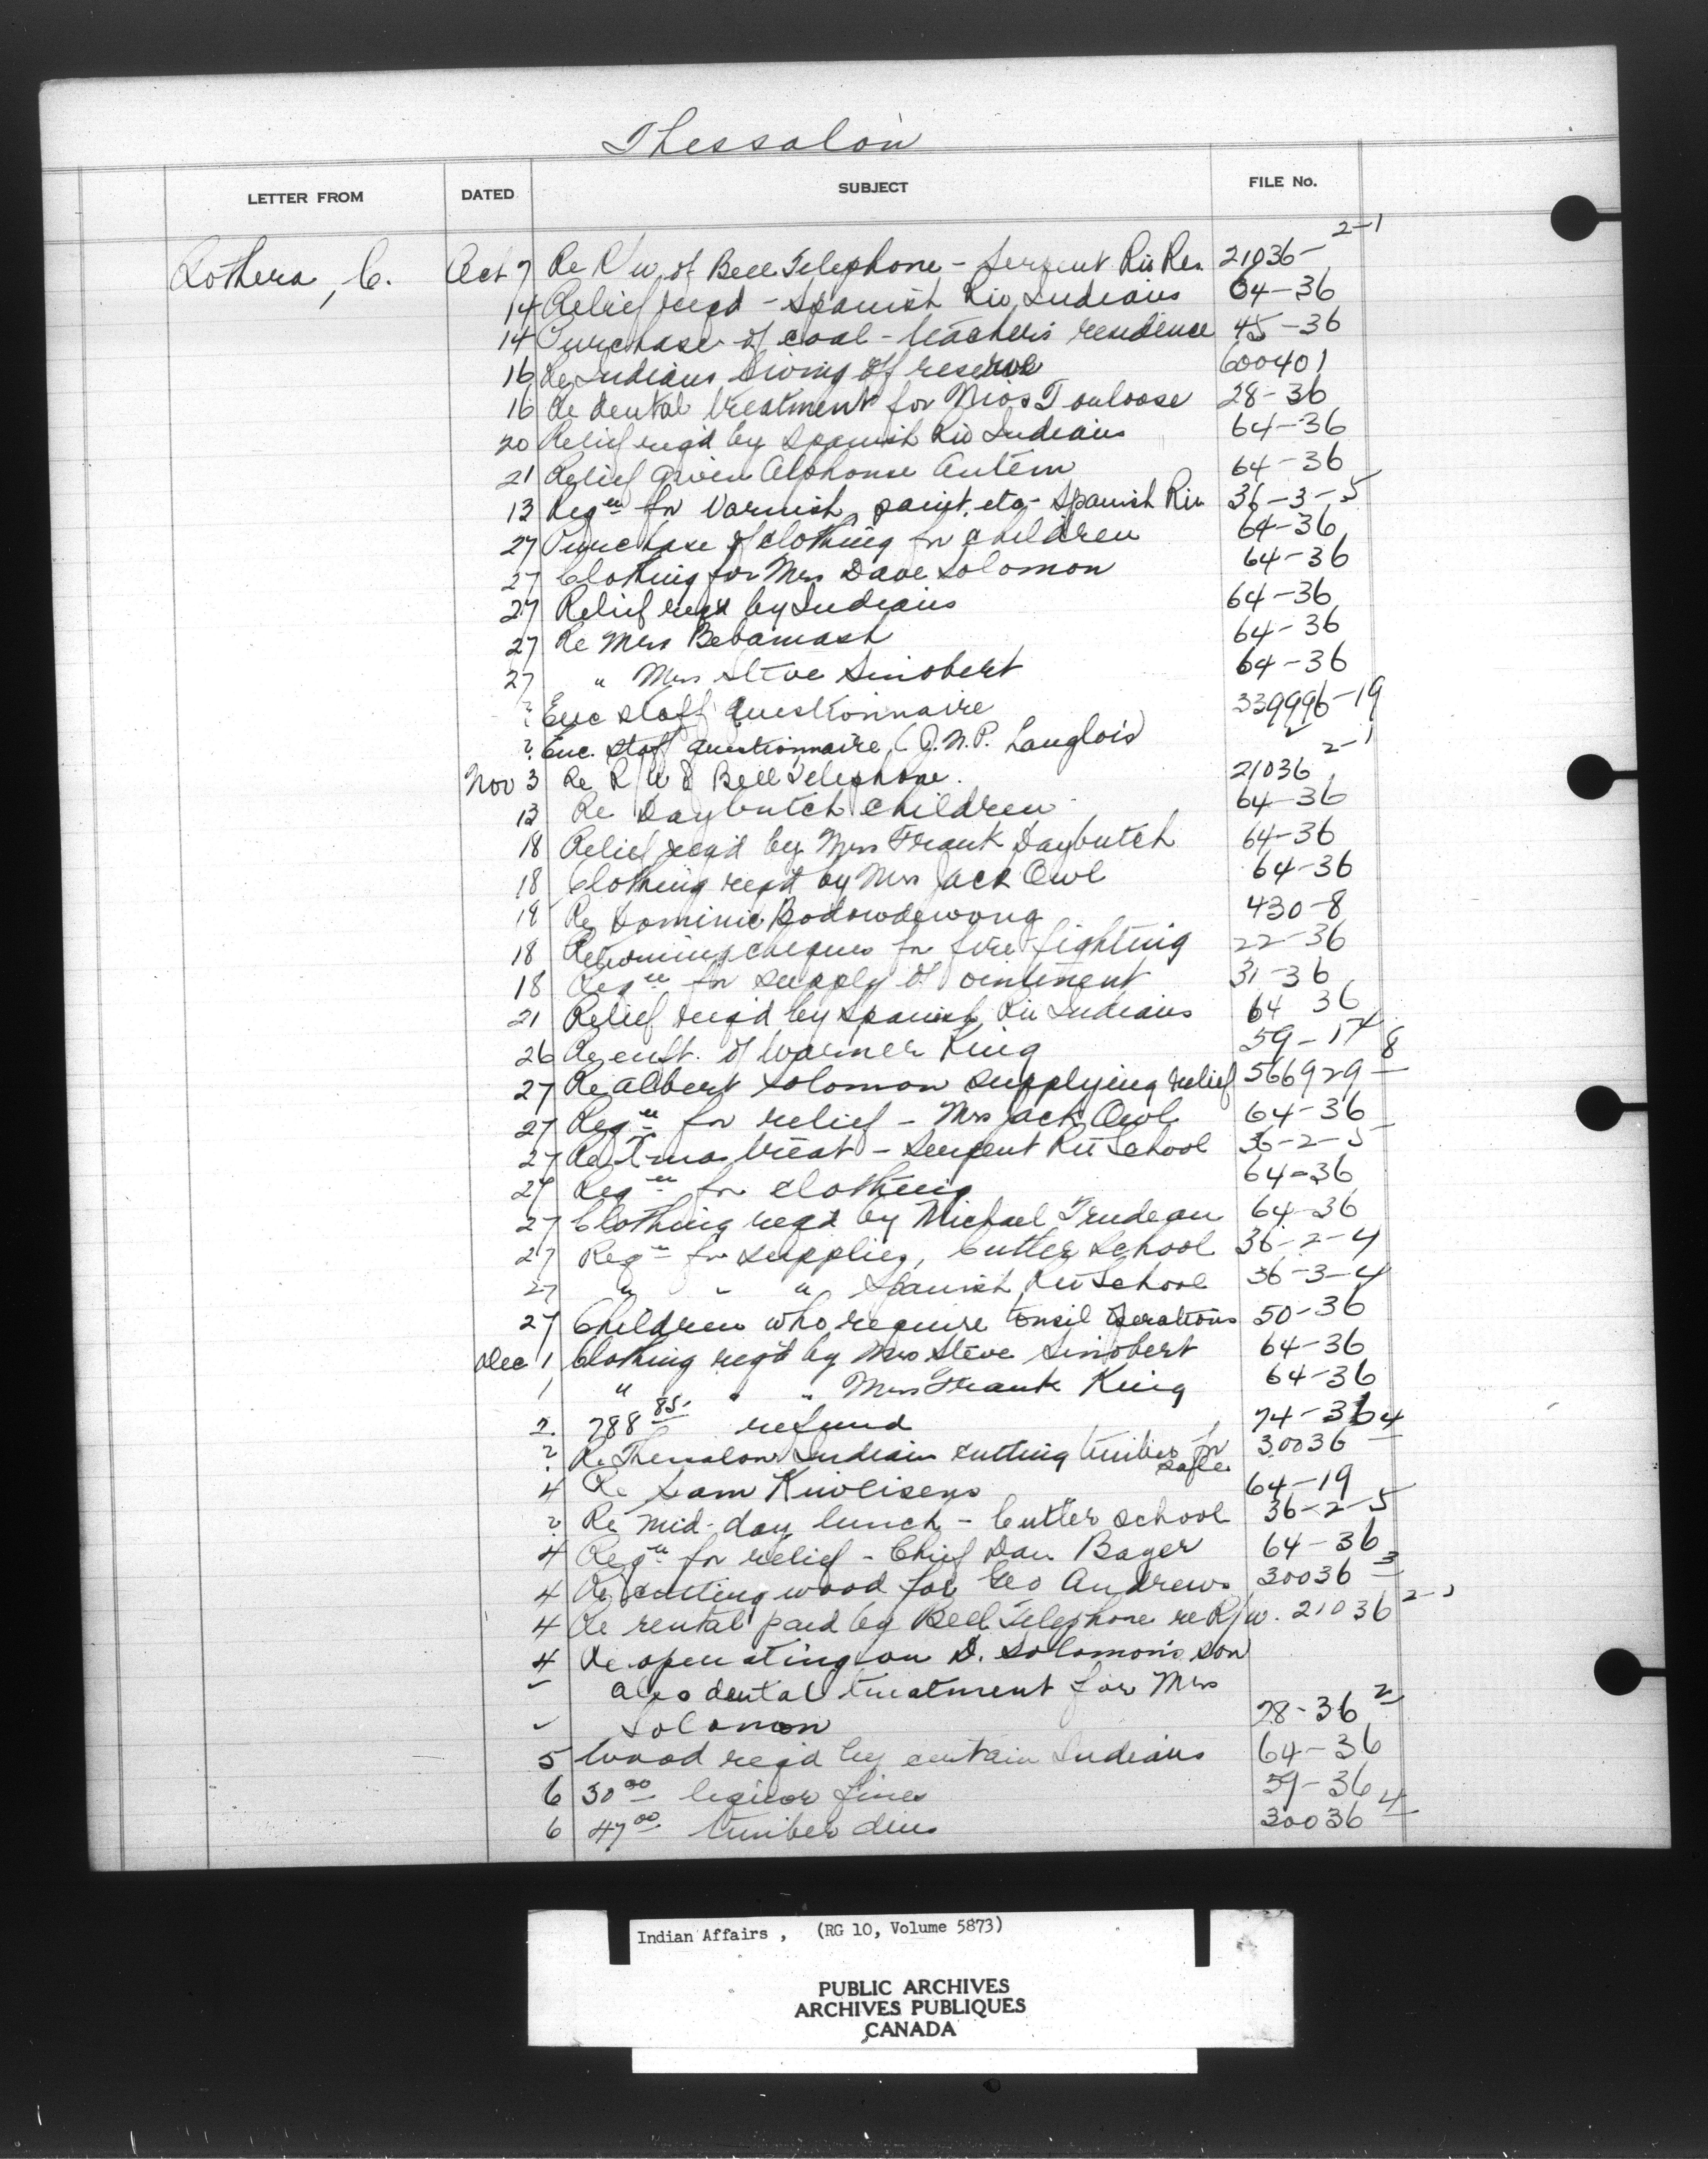 Thessalon
LETTER FROM DATED SUBJECT FILE No.
Lothera, C. Oct 7 Re R/w of Bell Telephone - Serpent Riv Res. 21036- 2-1
14 Relief reqd - Spanish Riv Indians 64-36
14 Purchase of coal - teacher's residence 45-36
16 Re Indians living off reserve 600401
16 Re dental treatment for Mrs Toulouse 28-36
20 Relief req'd by Spanish Riv Indians 64-36
21 Relief given Alphonse 64-36
13 Reqn for varnish, paint, etc - Spanish Riv 36-3-5
27 Purchase of clothing for children 64-36
27 Clothing for Mrs Dave Solomon 64-36
27 Relief reqd by Indians 64-36
27 Re Mrs Bebamash 64-36
27 " Mrs Steve Sinobert 64-36
? Enc staff questionnaire 339996-19
? Enc. staff questionnaire (J.N.P. Langlois) 2
Nov 3 Re R/W & Bell Telephone. 21036 2-1
13 Re Daybutch children 64-36
18 Relief reqd by Mrs Frank Daybutch 64-36
18 Clothing req'd by Mrs Jack Owl 64-36
18 Re Dominic Bodowdewong 430-8
18 Returning cheques for fire fighting 22-36
18 Reqn for supply of ointment 31-36
21 Relief req'd by Spanish Riv Indians 64 36
26 Re enft. of Warner King 59-17
27 Re Albert Solomon supplying relief 566929 8
27 Reqn for relief - Mrs Jack Owl 64-36
27 Re Xmas treat - Serpent Riv School 36-2-5
27 Reqn for clothing 64-36
27 Clothing reqd by Michael Trudeau 64-36
27 Reqn for supplies, Cutler School 36-2-4
27 " " " Spanish Riv School 36-3-4
27 Children who require tonsil operations 50-36
Dec 1 Clothing req'd by Mrs Steve Sinobert 64-36
1 " " " Mrs Frank King 64-36
2 788 85 refund 74-36
? Re Thessalon Indians cutting timber for sale 30036 4
4 Re Sam 64-19
? Re mid-day lunch - Cutler school 36-2-5
4 Reqn for relief - Chief Dan Bager 64-36
4 Re cutting wood for Geo Andrews 30036 3
4 Re rental paid by Bell Telephone re R/w. 21036 2-1
4 Re operating on D. Solomon's son
" also dental treatment for Mrs
" Solomon 28-36 2
5 Wood req'd by certain Indians 64-36
6 30 00 liquor fines 59-36
6 47 00 timber dues 30036 4
Indian Affairs , (RG 10, Volume 5873)
PUBLIC ARCHIVES
ARCHIVES PUBLIQUES
CANADA